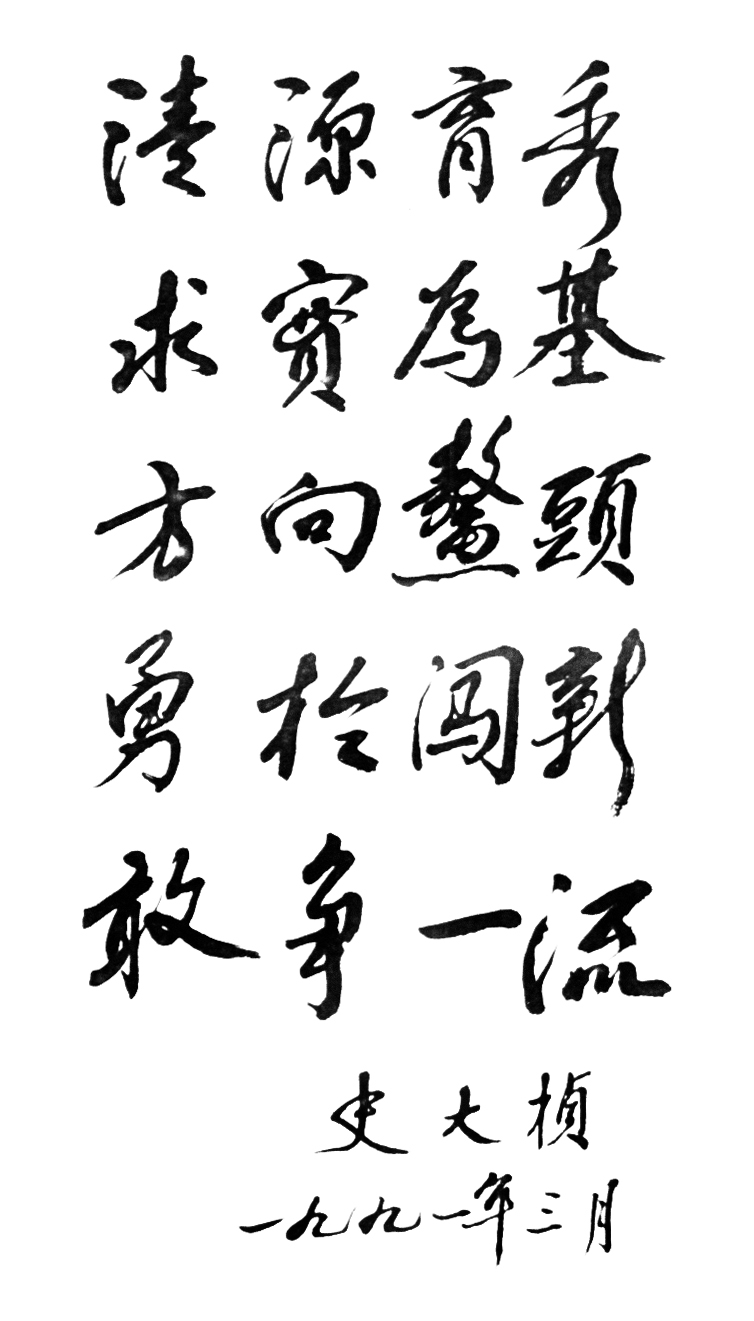 清源育秀
求實為基
方向鰲頭
勇於闯新
敢争一流
史大楨
一九九一年三月